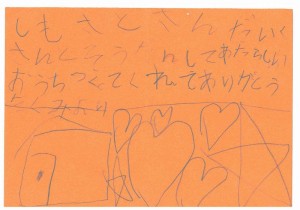 しもさとさんだいく
さんくろう  してあたらしい
おうちつくてくれてありがとう
くみより